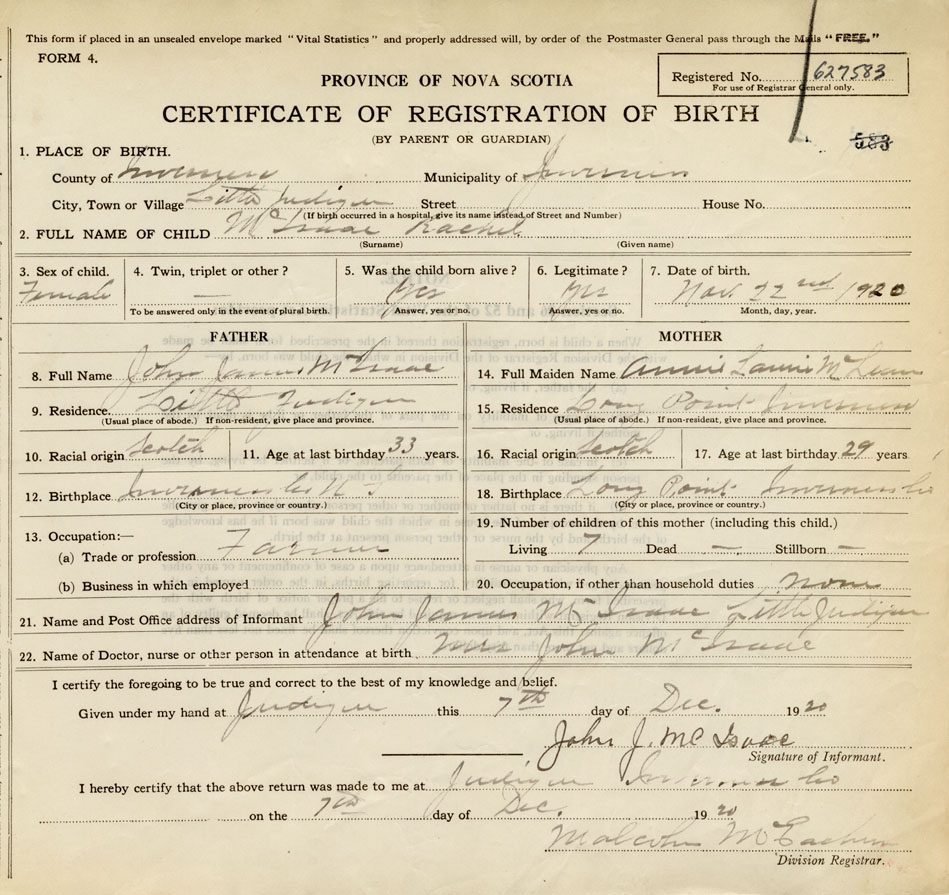 This form if placed in an unsealed envelope marked "Vital Statistics" and properly addressed will, by order of the Postmaster General pass through the Mails "FREE."
FORM 4.
Registered No. 627583
For use of Registrar General only.
PROVINCE OF NOVA SCOTIA
CERTIFICATE OF REGISTRATION OF BIRTH
(BY PARENT OR GUARDIAN)
583
1. PLACE OF BIRTH.
County of Inverness Municipality of Inverness
City, Town or Village Little Judique Street House No.
(If birth occurred in a hospital, give its name instead of Street and Number)
2. FULL NAME OF CHILD McIsaac Rachel
(Surname) (Given name)
3. Sex of child. 4. Twin, triplet or other? 5. Was the child born alive? 6. Legitimate? 7. Date of birth.
Female — Yes Yes Nov. 22nd 1920
To be answered only in the event of plural birth. Answer, yes or no. Answer, yes or no. Month, day, year.
FATHER
8. Full Name John James McIsaac
9. Residence. Little Judique
(Usual place of abode.) If non-resident, give place and province.
10. Racial origin Scotch 11. Age at last birthday 33 years.
12. Birthplace Inverness Co N.S.
(City or place, province or country.)
13. Occupation:—
(a) Trade or profession Farmer
(b) Business in which employed
MOTHER
14. Full Maiden Name Annie Laurie McLean
15. Residence Long Point Inverness
(Usual place of abode.) If non-resident, give place and province.
16. Racial origin Scotch 17. Age at last birthday 29 years
18. Birthplace Long Point Inverness Co
(City or place, province or country.)
19. Number of children of this mother (including this child.)
Living 7 Dead — Stillborn —
20. Occupation, if other than household duties none
21. Name and Post Office address of Informant John James McIsaac Little Judique
22. Name of Doctor, nurse or other person in attendance at birth Mrs John McIsaac
I certify the foregoing to be true and correct to the best of my knowledge and belief.
Given under my hand at Judique this 7th day of Dec. 1920
John J. McIsaac
Signature of Informant.
I hereby certify that the above return was made to me at Judique Inverness Co
on the 7th day of Dec. 1920
Malcolm McEachern
Division Registrar.